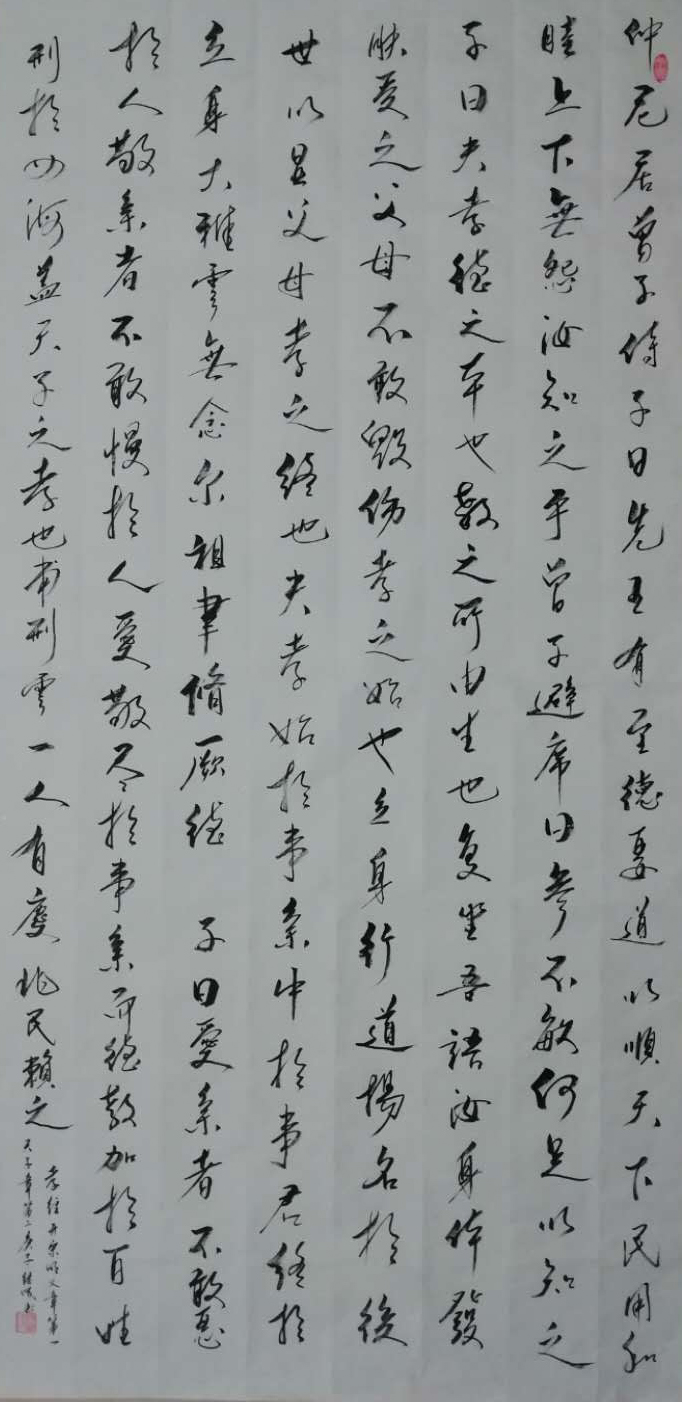 仲尼居曾子侍子曰先王有至德要道以順天下民用和
睦上下無怨汝知之乎曾子避席曰參不敏何足以知之
子曰夫孝德之本也教之所由生也復坐吾語汝身体發
肤受之父母不敢毀伤孝之始也立身行道揚名於後
世以显父母孝之終也夫孝始於事親中於事君終於
立身大雅雲無念尔祖聿脩厥德 子曰愛親者不敢惡
於人敬親者不敢慢於人愛敬尽於事親而德教加於百姓
刑於四海蓋天子之孝也甫刑雲一人有慶兆民賴之
孝经开宗明义章第一
天子章第二庚子